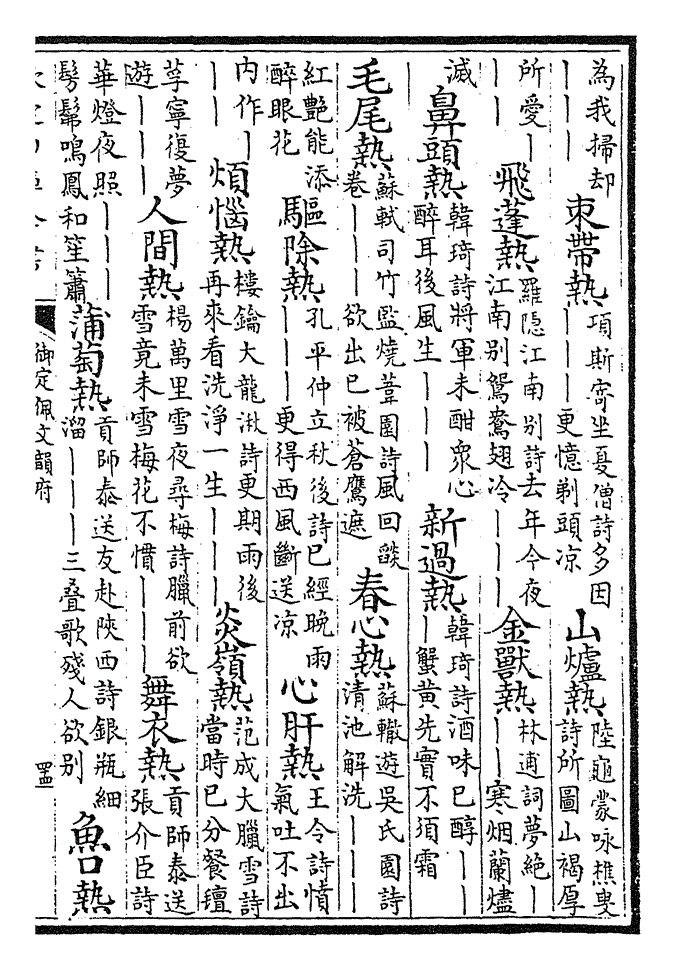 為我掃却
｜｜｜
束帶熱
項斯寄坐夏僧詩多因
｜｜｜更憶剃頭凉
山爐熱
陸龜蒙咏樵叟
詩所圖山褐厚
所愛｜
｜｜
飛蓬熱
羅隱江南别詩去年今夜
江南别鴛鴦翅冷｜｜｜
金獸熱
林逋詞夢絶｜
｜｜寒烟蘭燼
滅
鼻頭熱
韓琦詩將軍未酣衆心
醉耳後風生｜｜｜
新過熱
韓琦詩酒味已醇｜｜
｜蟹黄先實不須霜
毛尾熱
蘇軾司竹監燒葦園詩風回燄
卷｜｜｜欲出已被蒼鷹遮
春心熱
蘇轍遊吳氏園詩
清池解洗｜｜｜
紅艷能添
醉眼花
驅除熱
孔平仲立秋後詩已經晚雨
｜｜｜更得西風斷送凉
心肝熱
王令詩憤
氣吐不出
内作｜
｜｜
煩惱熱
樓鑰大龍湫詩更期雨後
再來看洗淨一生｜｜｜
炎嶺熱
范成大臘雪詩
當時已分餐氊
莩寧復夢
遊｜｜｜
人間熱
楊萬里雪夜尋梅詩臘前欲
雪竟未雪梅花不慣｜｜｜
舞衣熱
貢師泰送
張介臣詩
華燈夜照｜｜｜
髣髴鳴鳳和笙簫
蒲萄熱
貢師泰送友赴陜西詩銀瓶細
溜｜｜｜三叠歌殘人欲别
魯口熱
御定佩文韻府